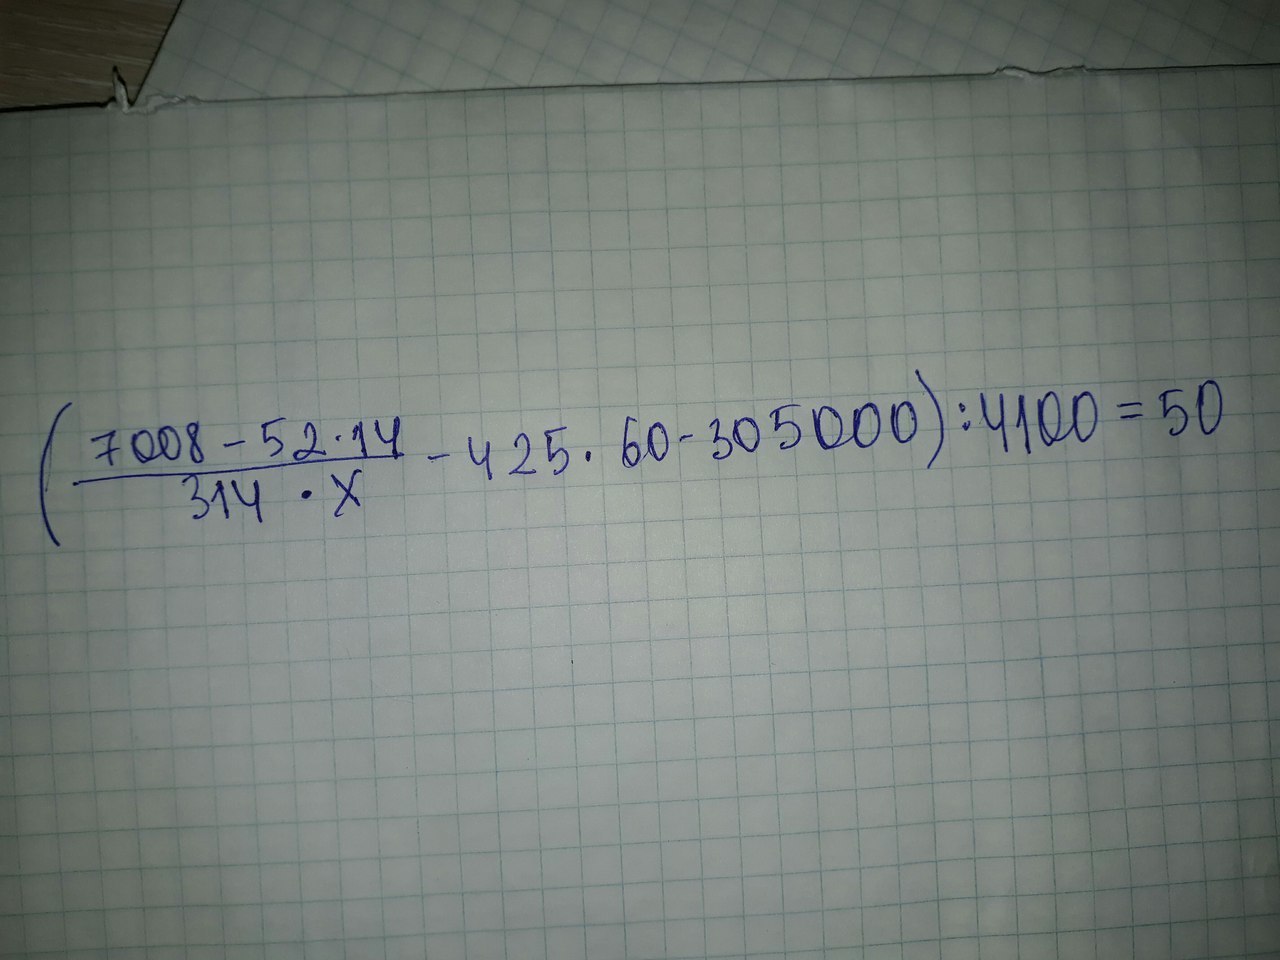 (7008 - 52·14 / 314 · X - 425 · 60 - 305000) : 4100 = 50